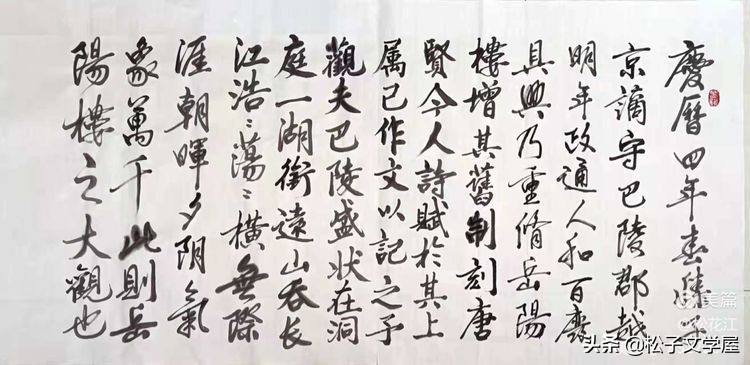 慶曆四年春滕子
京謫守巴陵郡越
明年政通人和百廢
具興乃重脩岳陽
樓增其舊制刻唐
賢今人詩賦於其上
属己作文以記之予
觀夫巴陵盛状在洞
庭一湖銜遠山吞长
江浩〻蕩〻橫無際
涯朝暉夕阴氣
象萬千此則岳
陽樓之大觀也
美篇
@松花江
头条 @松子文学屋